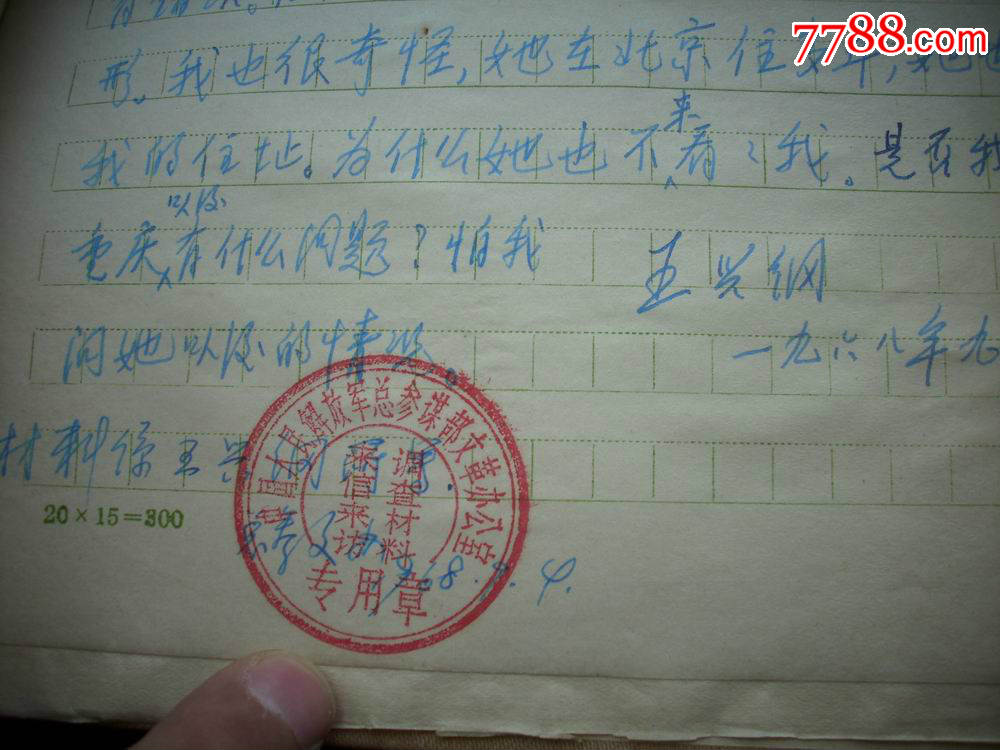 7788.com
形。我也很奇怪，她在北京住多年，她也
我的住址。为什么她也不来看看我。是否我
重庆以后有什么问题？怕我
王兴纲
问她以后的情况。
一九六八年九
材料系王兴纲所写。
中国人民解放军总参谋部文革办公室
调查材料
来信来访
专用章
1968.9.4.
20×15=300